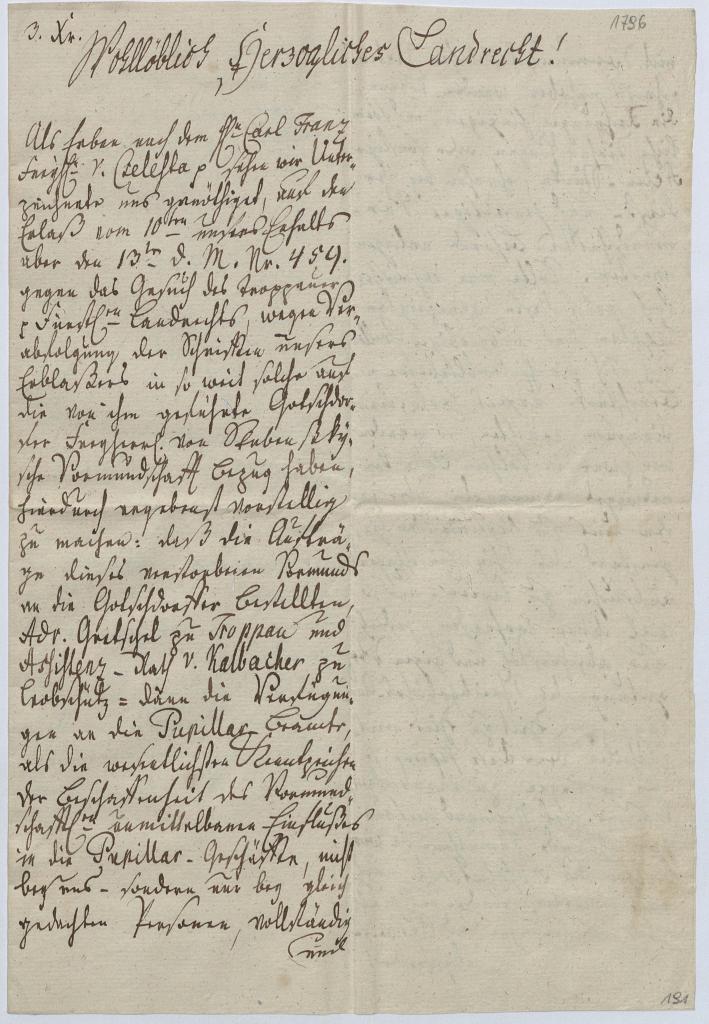 1796
3. Xr.
Wohllöblich Herzogliches Landrecht!
Als Erben nach dem H. Carl Franz
Freyh. v. Czelesta p sehen wir Unter-
zeichnete uns genöthiget, auf den
Erlaß vom 10ten unsers Erhalts
aber den 13ten d. M. Nr. 459.
gegen das Gesuch des Troppauer
p Fürstl.en Landrechts, wegen Ver-
abfolgung der Schriften unsers
Erblaßers in so weit solche auf
die von ihm geführte Gotschdor-
fer Freyherrl. von Skrbenskÿ-
sche Vormundschaft bezug haben,
hierdurch ergebenst vorstellig
zu machen: daß die Aufträ-
ge dieses verstorbenen Vormunds
an die Gotschdorffer Bestellten,
Adv. Gretschel zu Troppau und
Assistenz-Rath v. Kalbacher zu
Leobschütz = dann die Verfügun-
gen an die Pupillar Beamte,
als die wesentlichsten Kennzeichen
der Beschaffenheit des Vormund-
schaftl.en unmittelbaren Einflußes
in die Pupillar-Geschäfte, nicht
bey uns - sondern nur bey gleich
gedachten Personen, vollständig
und
191